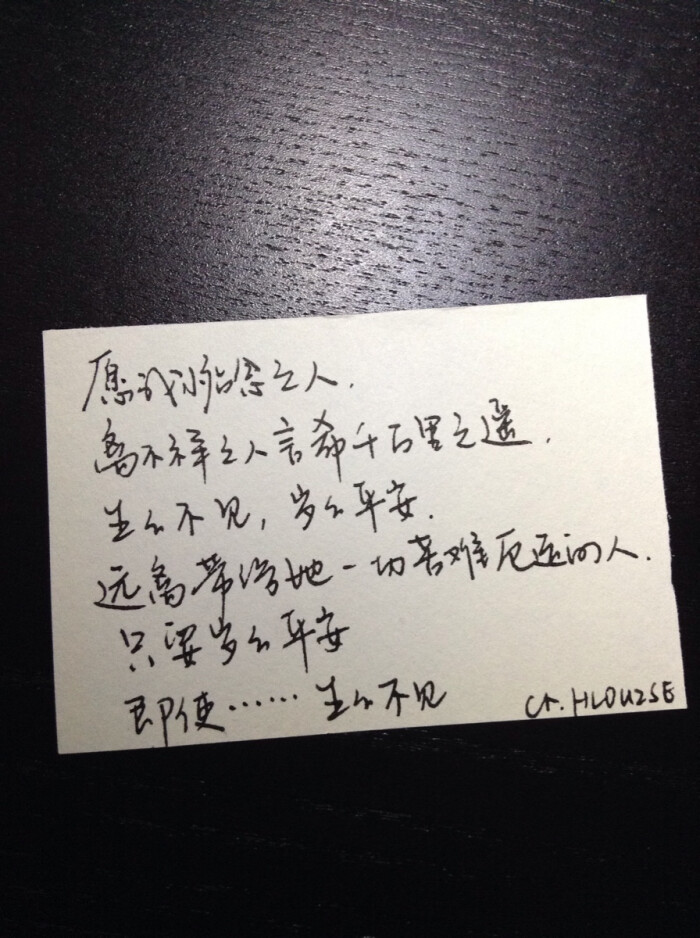 愿我惦念之人.
离不祥之人言希千百里之遥.
生生不见,岁岁平安.
远离带给她一切苦难厄运的人.
只要岁岁平安
即使……生生不见